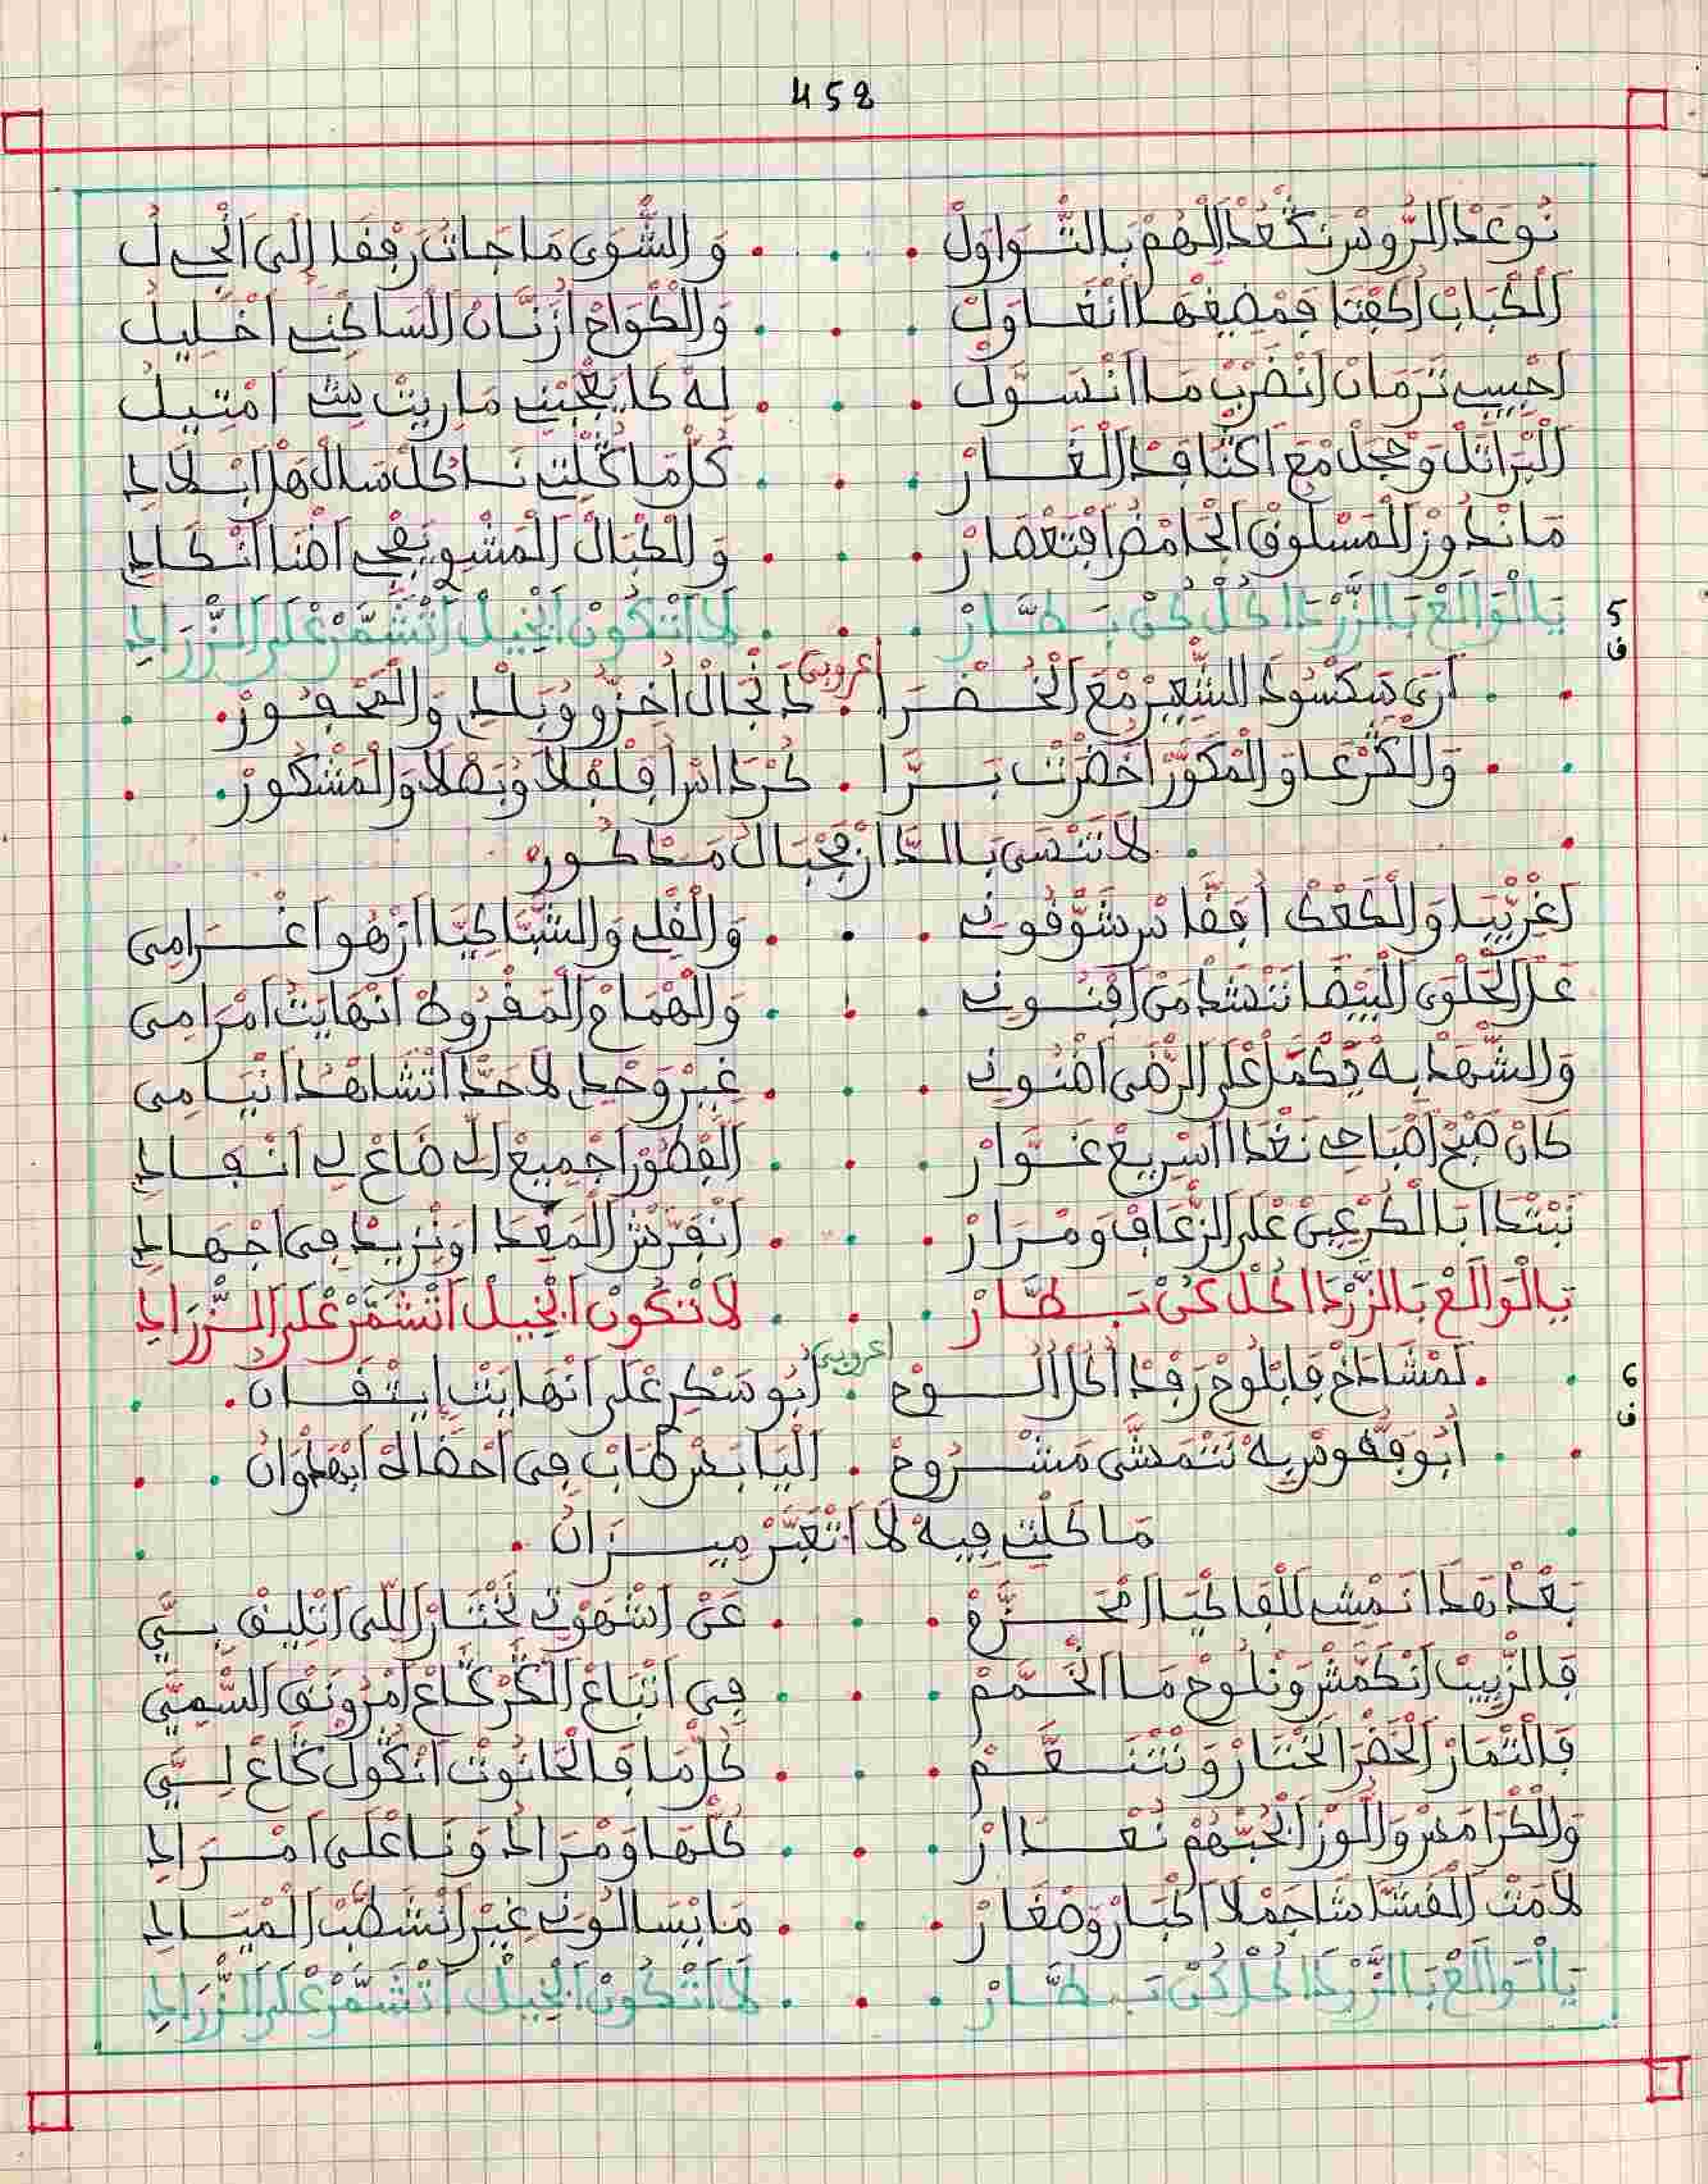 458
نُوعَدْ الرُّوسْ نَگعُدْ الْهُمْ بَالتّْوَاوَلْ . . . وَالشّْوَى مَا جَاتْ رَفْفَا إِلَى انْجِيلُ
الْكْبَابْ اكْفْتَا فَمْضِيغْهَا انْغَاوَلْ . . . وَالْكْوَاحْ ازْنَانْ السَاكَنِي اخْلِيلُ
احْبِيبِي تَرْمَانْ انْضْرَبْ مَا انْسَوَّلْ . . . لِهْ كَا يَعْجَبْنِي مَا رِيتْ شِي امْتِيلُ
الْبْرَاتَلْ وَحْجَلْ مْعَ اكْتَافْ الْغَارْ . . . كُلّْ مَا كْلِيتْ نَاكُلْ سَالْ هْلْ ابْلَادِي
مَا نْدُوزْ الْمَسْلُوقْ الْحَامْضْ افْتَعْصَارْ . . . وَالْكْبَالْ الْمَشْوِي يَفْجِي اضْنَا انْكَادِي
5
ف
يَا الْوَالَعْ بَالزَّرْدَا كُلْ كُنْ بَطَّارْ . . . لَا اتْكُونْ ابْخِيلْ اتْشَمَّرْ عْلَى الزّْرَادِي
اعروبي
أرَى سَكْسُو دْ الشّْعِيرْ مْعَ الْخُضْرَا . دَنْجَالْ اخِزُّو وُبَلْدِي وَالْمَحْفُورْ
وَالْگرْعَا وَالْمْكَوَّرْ اخْضَرْتْ بَرَّا . كُرْدَاسْ افْلِفْلَا وُبَصْلَا وَالْمَشْكُورْ
لَا تَنْسَى بَالدَّارْجْبَالْ مَدْكُورْ
اغْرَيْبَا وَالْكَعْكْ افَقَّاسْ شَوّْقُونِي . . . وَالْفْلِي وَالشَّبَّاكِيَّا ازْهُو اغْرَامِي
عَلْ الْحَلْوَى الْبِيضَا نَنْشَدْ مَنْ افْنُونِي . . . وَالْهْمَامْ الْمَفْرُوطْ انْهَايَتْ امْرَامِي
وَالشّْهْدْ بِهْ نَكْمَلْ عْلَى الرّْضَى اضْنُونِي . . . غِيرْ وَحْدِي لَا حَدّْ اتْشَاهْدُ انْيَامِي
كَانْ صْبَحْ اصْبَاحِي نَغْدَا اسْرِيعْ غَوَّارْ . . . الْفْطُورْ اجْمِيعْ الِّي ضَاعْ لِي انْفَادِي
نَبْتْدَا بَالْكُرْعِينْ عْلَى الزّْعَافْ وَمْرَارْ . . . انْفَرَّشْ الْمَعْدَا اوَنْزِيدْ فِي اجْهَادِي
يَا الْوَالَعْ بَالزَّرْدَا كُلْ كُنْ بَطَّارْ . . . لَا تْكُونْ ابْخِيلْ اتْشَمَّرْ عْلَى الزّْرَادِي
6
ف
اعروبي
لَمْشَادَخْ فَابْلُوحْ رَفْدْ اكُلّْ الُوحْ . ابُو سَكْرِي عْلَى انْهَايَتْ ايتْفَانْ
أبُو فَقُّوسْ بِهْ نَتْمَشَّى مَشْرُوحْ . الْيَابَسْ طَابْ فِي احْضَاكْ ابْهَلْوَانْ
مَا كْلِيتْ فِيهْ لَا اتْعَبَّرْ مِيزَانْ
بَعْدْ هَدَا نَمْشِي لَلْفَاكْيَا امْحَزَّمْ . . . عَنْ اشْهَوْتِي نَخْتَارْ اللِّي اتْلِيقْ بِيَّ
فَالزّْبِيبْ انْكَمَّشْ وَنْلُوحْ مَا الْخَمَّمْ . . . فِي اتْبَاعْ الْگرْگاعْ امْرَوْنَقْ السّْمِيَّ
فَالتّْمَارْ الْخَضْرَا نَخْتَارْ وَنَتْنَعَّمْ . . . كُلّْ مَا فَالْحَانُوتْ انْگولْ گاعْ لِيَّ
وَالْكْرَامَسْ وَاللُّوزْ انْحَبّْهُمْ نُعْدَارْ . . . كُلّْهَا وَمْرَادُ وَنَا عْلَى امْرَادِي
لَامْتْ الْفَشَّاشَا جَمْلَا اكْبَارْ وَصْغَارْ . . . مَا يْسَالُونِي غِيرْ انْشَطَّبْ الْمْيَادِي
يَا الْوَالَعْ بَالزَّرْدَا كُلْ كُنْ بَطَّارْ . . . لَا اتْكُونْ ابْخِيلْ اتْشَمَّرْ عْلَى الزّْرَادِي